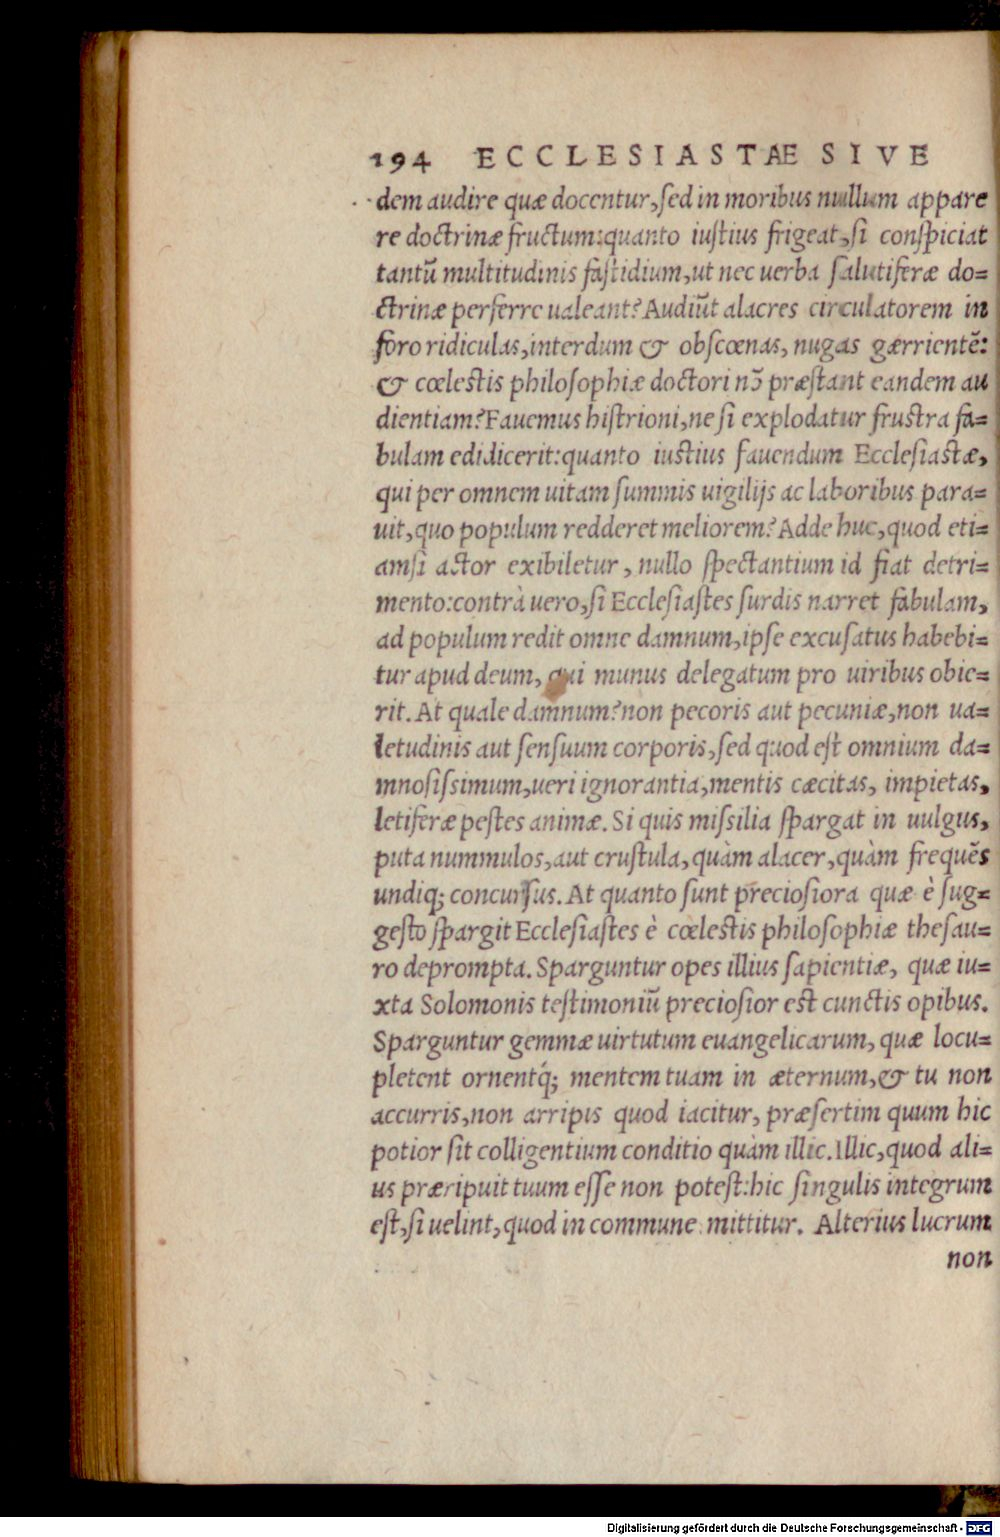 194 ECCLESIASTÆ SIVE
dem audire quæ docentur, sed in moribus nullum appare
re doctrinæ fructum: quanto iustius frigeat, si conspiciat
tantū multitudinis fastidium, ut nec uerba salutiferæ do=
ctrinæ perferre ualeant? Audiūt alacres circulatorem in
foro ridiculas, interdum & obscœnas, nugas gærrientē:
& cœlestis philosophiæ doctori nō præstant eandem au
dientiam? Fauemus histrioni, ne si explodatur frustra fa=
bulam edidicerit: quanto iustius fauendum Ecclesiastæ,
qui per omnem uitam summis uigilijs ac laboribus para=
uit, quo populum redderet meliorem? Adde huc, quod eti=
amsi actor exibiletur, nullo spectantium id fiat detri=
mento: contrà uero, si Ecclesiastes surdis narret fabulam,
ad populum redit omne damnum, ipse excusatus habebi=
tur apud deum, qui munus delegatum pro uiribus obie=
rit. At quale damnum? non pecoris aut pecuniæ, non ua=
letudinis aut sensuum corporis, sed quod est omnium da=
mnosissimum, ueri ignorantia, mentis cæcitas, impietas,
letiferæ pestes animæ. Si quis missilia spargat in uulgus,
puta nummulos, aut crustula, quàm alacer, quàm frequēs
undiq; concursus. At quanto sunt preciosiora quæ è sug=
gesto spargit Ecclesiastes è cœlestis philosophiæ thesau=
ro deprompta. Sparguntur opes illius sapientiæ, quæ iu=
xta Solomonis testimoniū preciosior est cunctis opibus.
Sparguntur gemmæ uirtutum euangelicarum, quæ locu=
pletent ornentq́; mentem tuam in æternum, & tu non
accurris, non arripis quod iacitur, præsertim quum hic
potior sit colligentium conditio quàm illic. Illic, quod ali=
us præripuit tuum esse non potest: hic singulis integrum
est, si uelint, quod in commune mittitur. Alterius lucrum
non
Digitalisierung gefördert durch die Deutsche Forschungsgemeinschaft - DFG